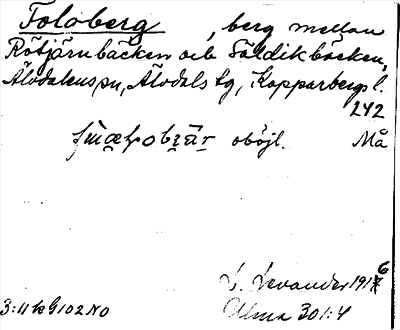 Foloberg, berg mellan
Rötjärnbäcken och Säldikbäcken,
Älvdalens sn, Älvdals tg, Kopparbergs l.
242
oböjl. Må
L. Levander 1916
3:11 b G102 NO Alma 301:4